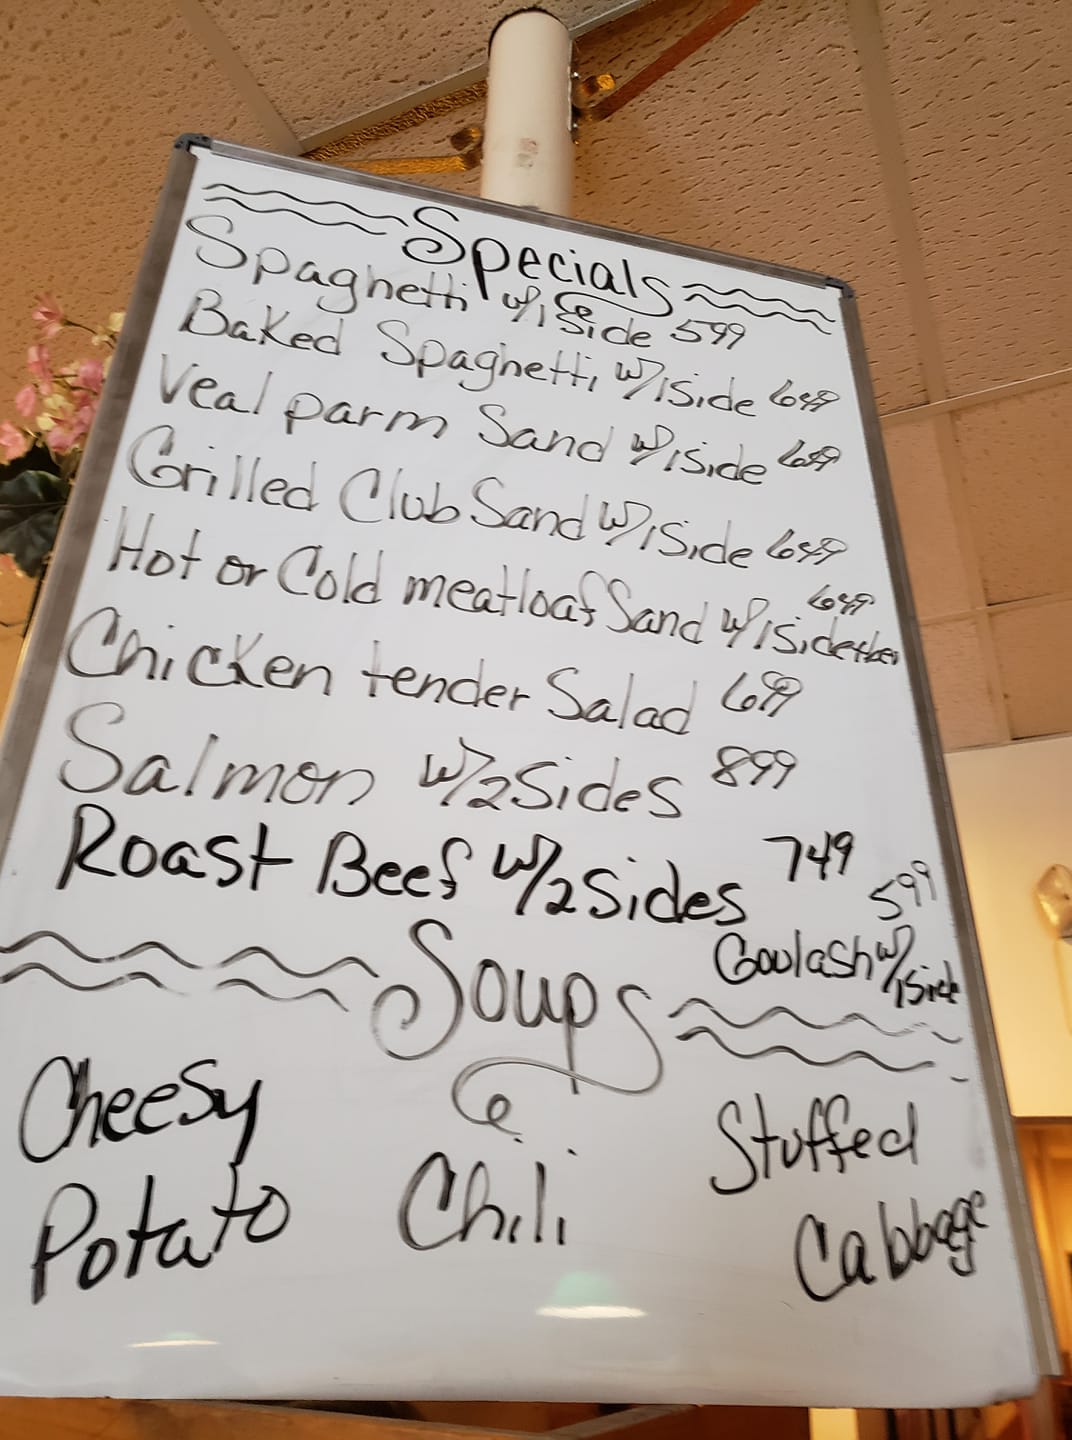 Specials
Spaghetti w/1side 599
Baked Spaghetti w/1side 649
Veal parm Sand w/1side 649
Grilled Club Sand w/1side 649
Hot or Cold meatloaf Sand w/1side 649
Chicken tender Salad 699
Salmon w/2sides 899
Roast Beef w/2sides 749
Goulash w/1side 599
Soups
Cheesy Potato
Chili
Stuffed Cabbage